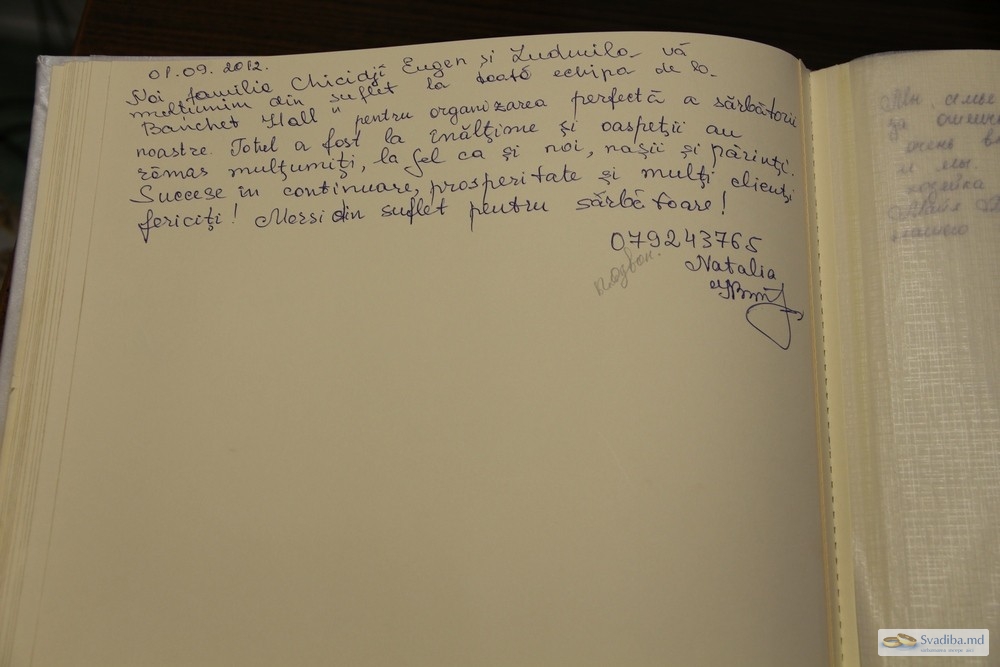 01.09.2012.
Noi familia Chicidji Eugen și Ludmila vă
mulțumim din suflet la toată echipa de lo-
Banchet Hall" pentru organizarea perfectă a sărbătorii
noastre. Totul a fost la înălțime și oaspeții au
rămas mulțumiți, la fel ca și noi, nașii și părinți.
Succese în continuare, prosperitate și mulți clienți
fericiți! Mersi din suflet pentru sărbătoare!
079243765
позвон.
Natalia
Мы, семья
за
очень
и мы.
Svadiba.md